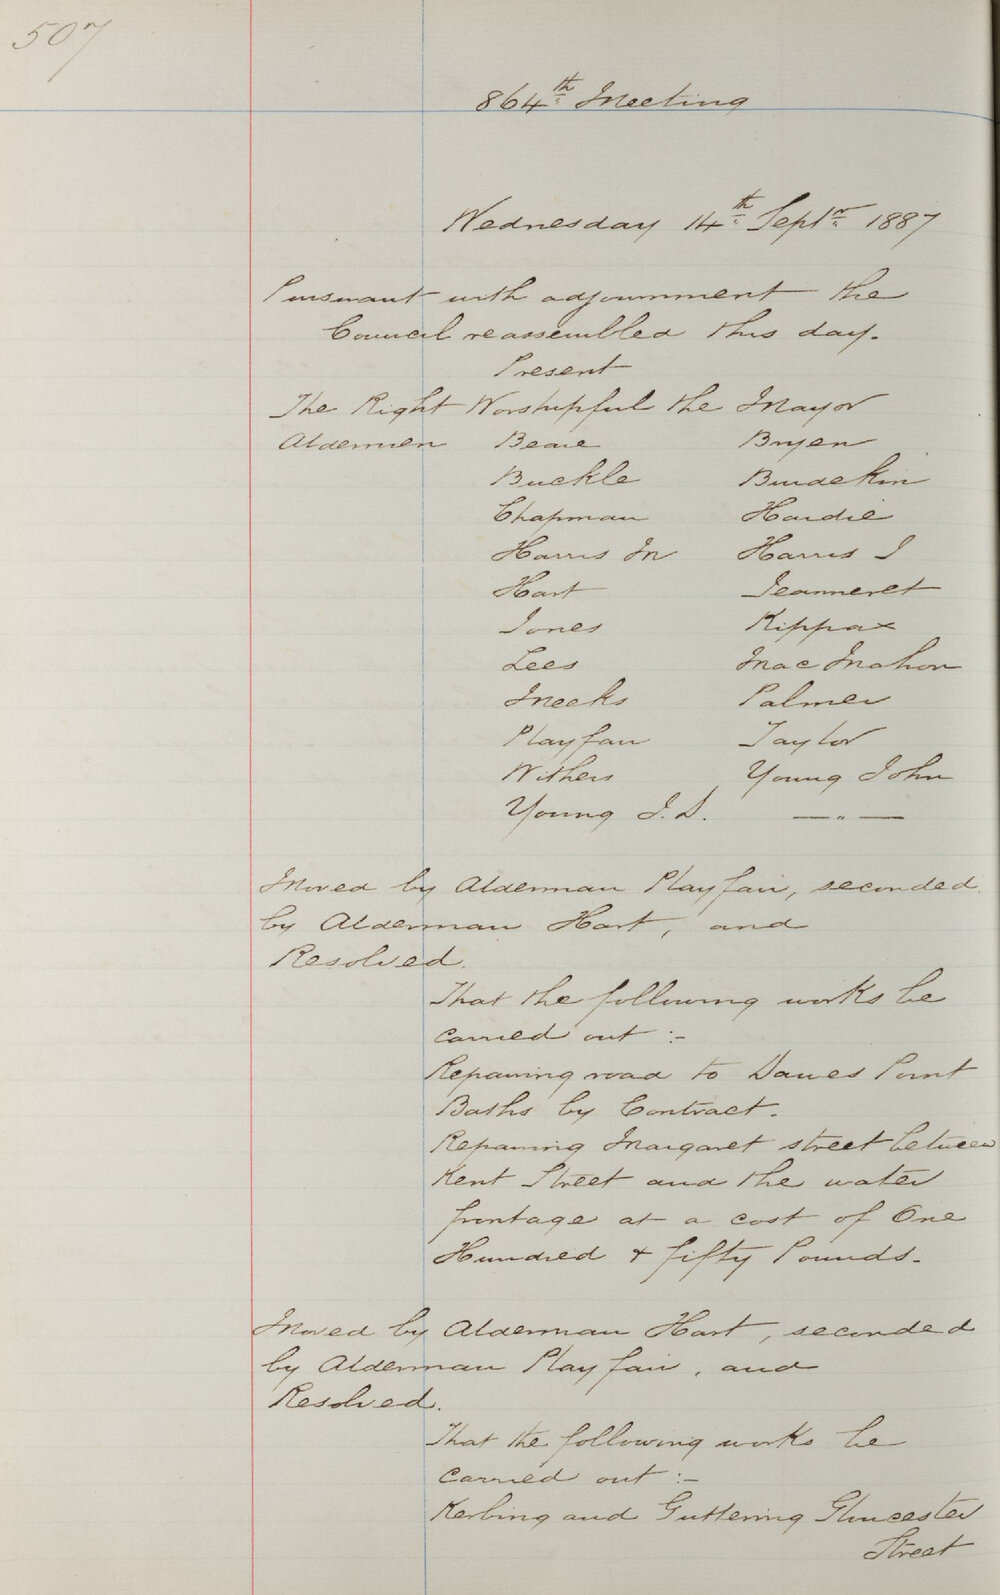 507
864th Meeting
Wednesday 14th Septr 1887
Pursuant with adjournment the
Council reassembled this day.
Present
The Right Worshipful the Mayor
Aldermen Beare Bryen
Buckle Burdekin
Chapman Hardie
Harris M Harris J
Hart Jeanneret
Jones Kippax
Lees Mac Mahon
Meeks Palmer
Playfair Taylor
Withers Young John
Young J.D. —"—
Moved by Alderman Playfair, seconded
by Alderman Hart, and
Resolved.
That the following works be
carried out :-
Repairing road to Dawes Point
Baths by Contract.
Repairing Margaret street between
Kent Street and the water
frontage at a cost of One
Hundred & fifty Pounds.
Moved by Alderman Hart, seconded
by Alderman Playfair, and
Resolved.
That the following works be
carried out :-
Kerbing and Guttering Gloucester
Street